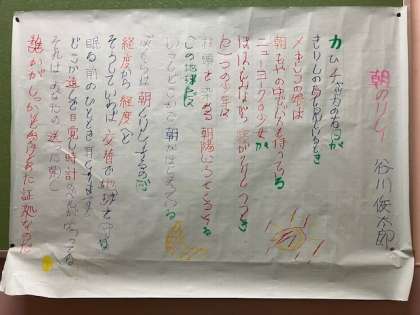 朝のリレー
谷川俊太郎
カムチャッカの若者が
きりんのゆめを見ているとき
メキシコの娘は
朝もやの中でバスを待っている
ニューヨークの少女が
ほほえみながら寝がえりをうつとき
ローマの少年は
柱頭を染める朝陽にウインクする
この地球では
いつもどこかで朝がはじまっている
ぼくらは朝をリレーするのだ
経度から経度へと
そうしていわば交替で地球を守る
眠る前のひととき耳をすますと
どこか遠くで目覚時計のベルが鳴ってる
それはあなたの送った朝を
誰かがしっかりと受けとめた証拠なのだ